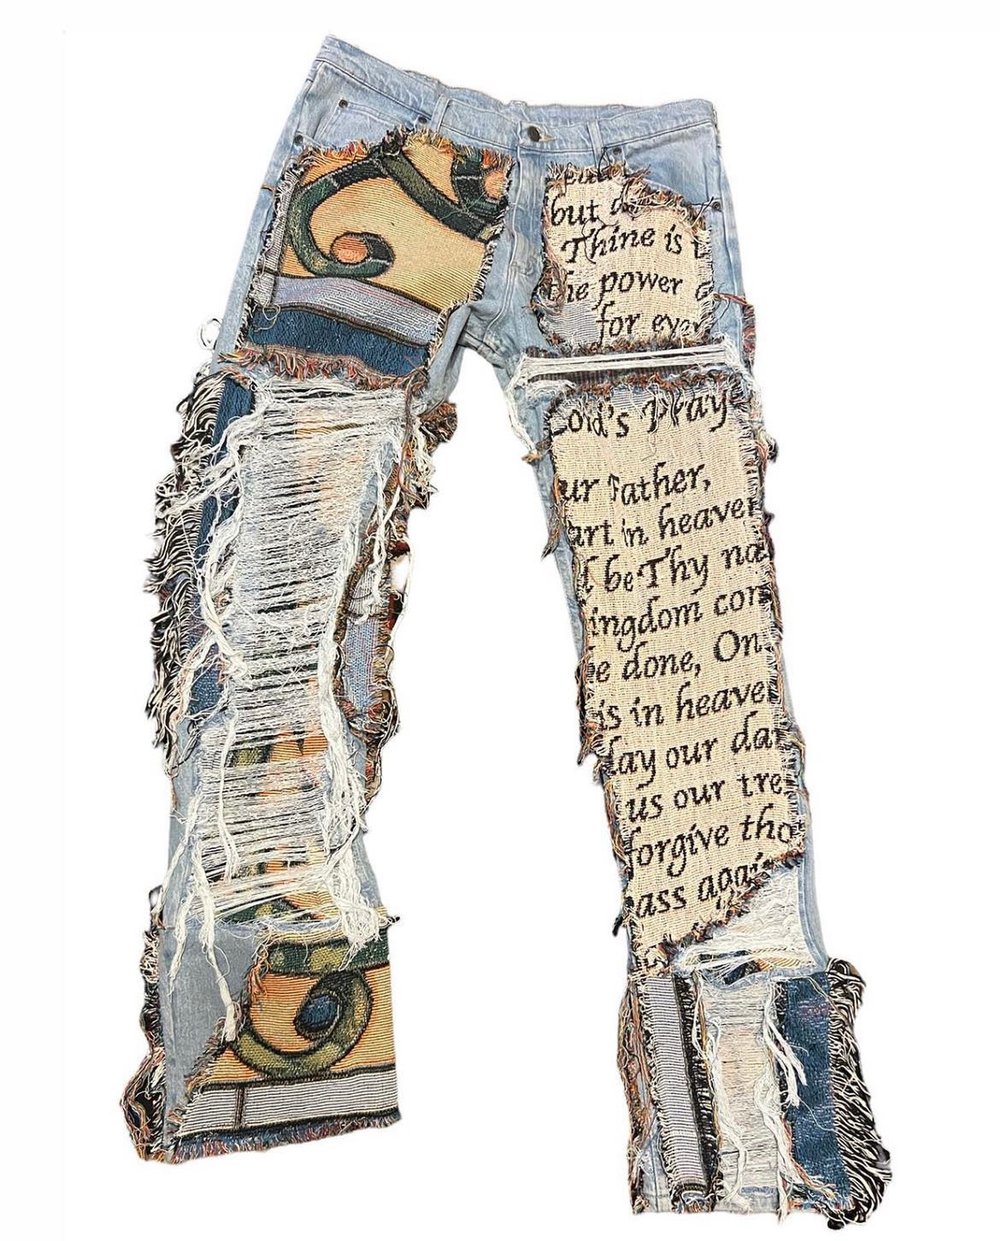 but
Thine is
the power
for ever
Lord's Pray
ur Father,
art in heaven
d be Thy na
ingdom com
be done, On
is in heaven
day our dai
us our tres
forgive tho
pass again